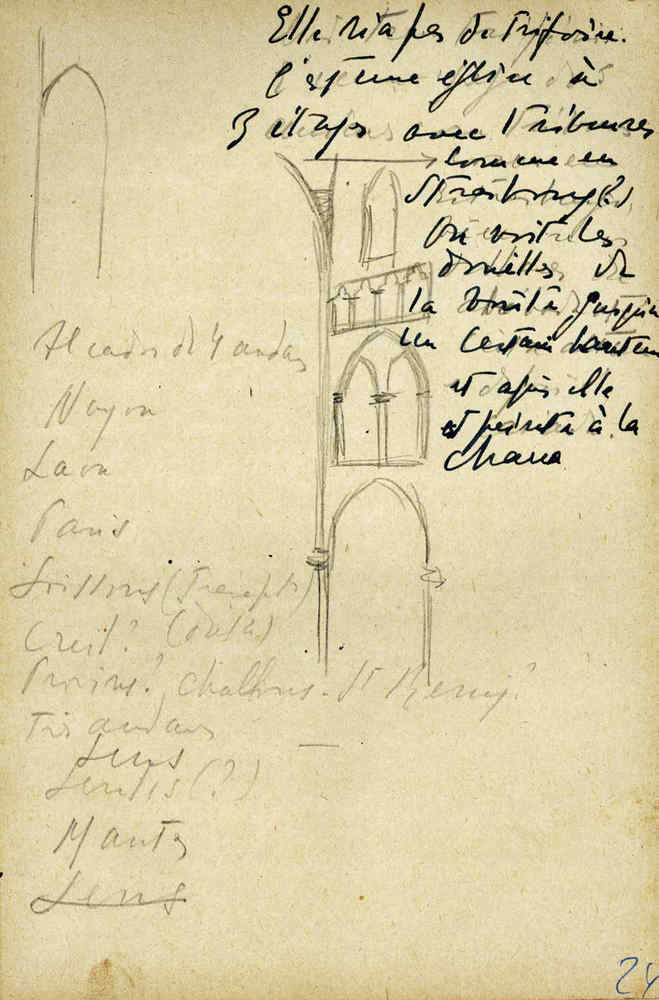 Elle n'a pas de Triforium.
C'est une église à
3 étages avec Tribunes
comme en
Strasbourg(?)
On voit les
de
la voûte jusqu'à
un certain hauteur
et après elle
et peinte à la
chaux
Alçados de 4 andar
Noyon
Laon
Paris
Soissons (Transepto)
Creil?
Provins? Challons. St Remy?
Tres andares
Sens
Senlis (?)
Mantes
Sens
24